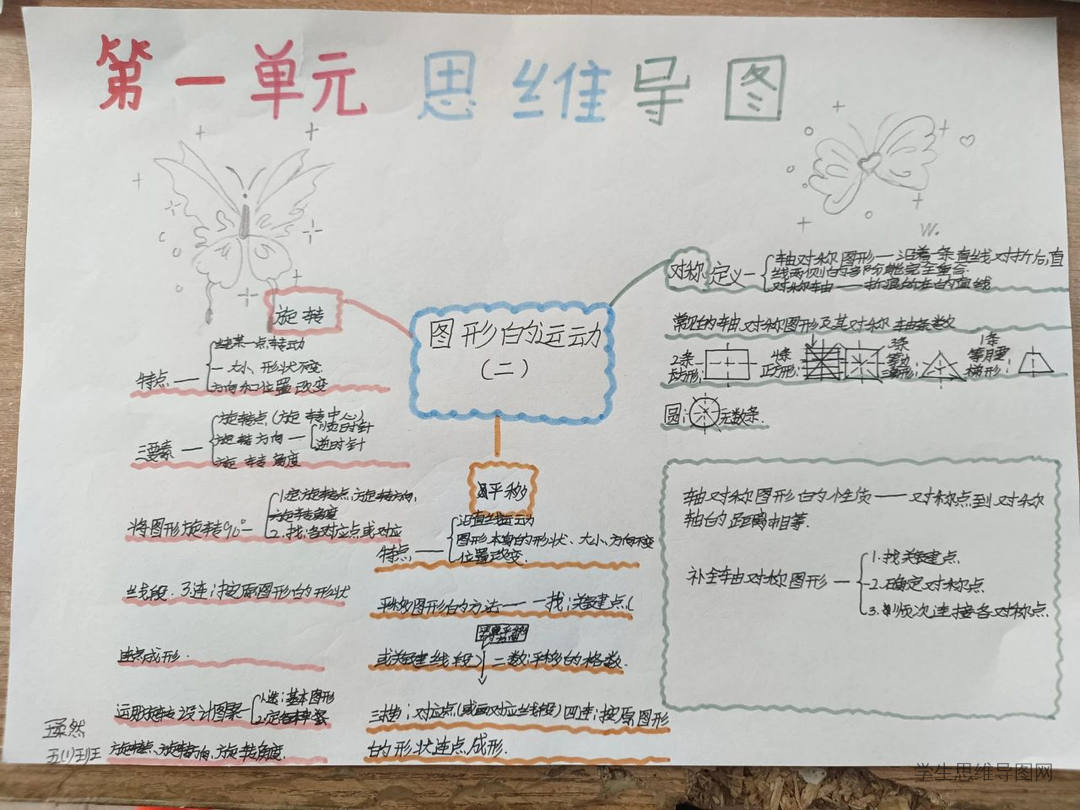 第一单元 思维导图
w.
图形的运动
(二)
旋转
特点
绕某一点转动
大小、形状不变
方向和位置改变
三要素
旋转点(旋转中心)
旋转方向
顺时针
逆时针
旋转角度
将图形旋转90°
1.定:旋转点,旋转方向,
旋转角度
2.找:各对应点或对应
线段.3.连:按原图形的形状
连点成形.
运用旋转设计图案
1.选:基本图形
旋转点、旋转方向、旋转角度.
平移
特点
沿直线运动
图形本身的形状、大小、方向不变
位置改变.
平移图形的方法 一找:关键点(
或关键线段) 二数:平移的格数.
对应点(或画对应线段) 四连:按原图形
的形状连点成形.
对称
定义
轴对称图形——沿着一条直线对折后,直
线两侧的部分能完全重合.
对称轴——折痕所在的直线
常见的轴对称图形及其对称轴条数
2条
长方形:
4条
正方形:
3条
等边
三角形:
1条
等腰
梯形:
圆:
无数条.
轴对称图形的性质——对称点到对称
轴的距离相等.
补全轴对称图形
1.找关键点.
2.确定对称点.
3.顺次连接各对称点.
五(1)班
学生思维导图网